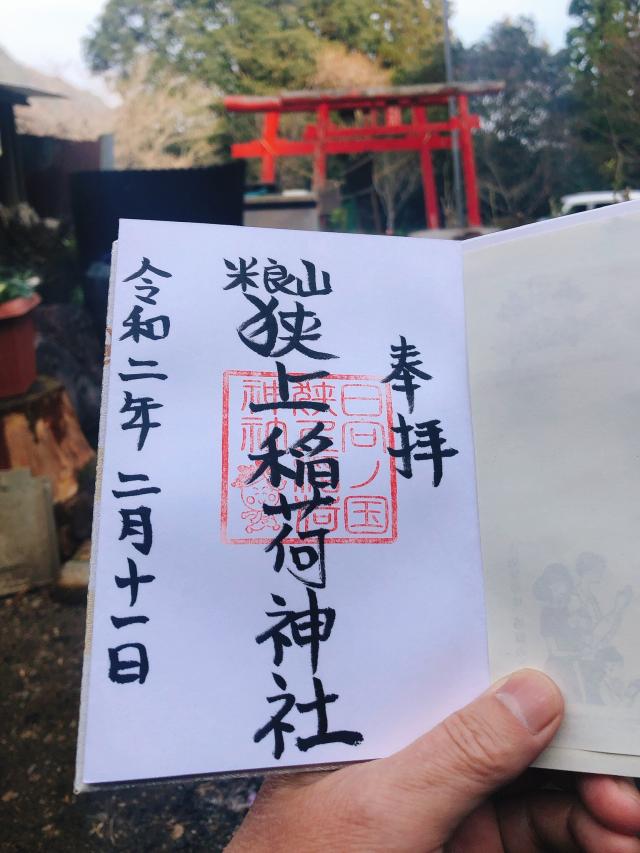 奉拝
米良山
狭上稲荷神社
日向ノ国
狭上稲荷
神社
令和二年二月十一日